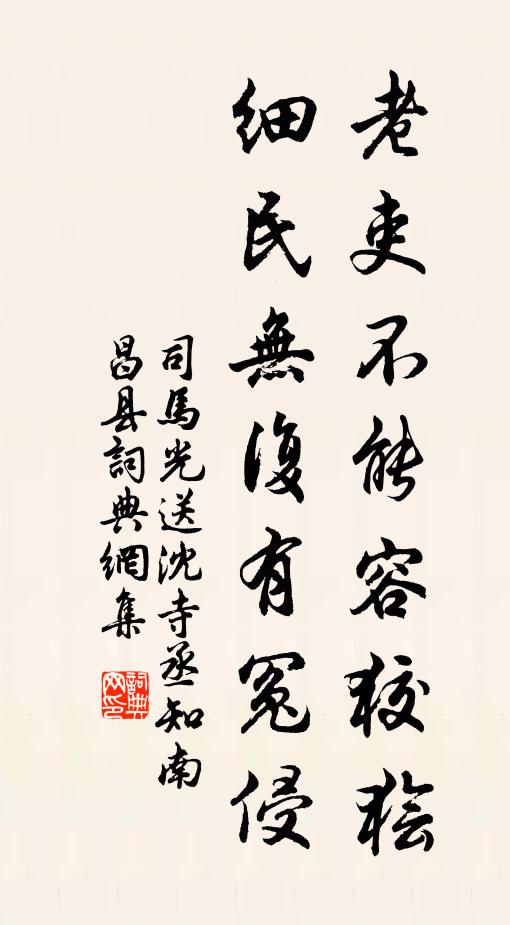 老吏不能容狡獪
細民無復有冤侵
司馬光送沈寺丞知南
昌县詞典網集
詞典网印